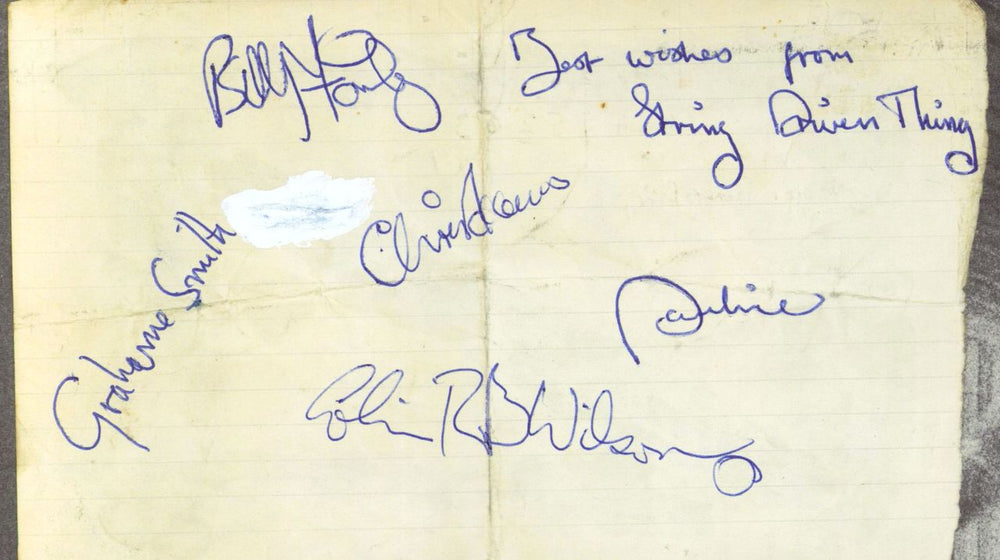 Billy Fairley
Best wishes from
String Driven Thing
Chris Adams
Grahame Smith
Pauline
Colin R B Wilson